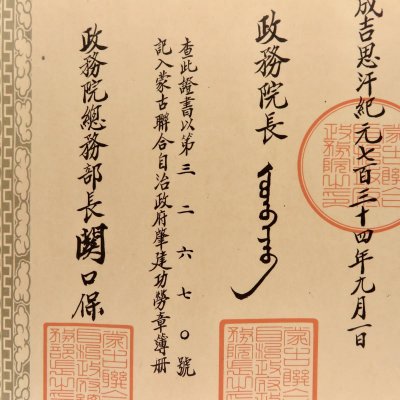 成吉思汗紀元七百三十四年九月一日
政務院長
查此證書以第三二六七〇號
記入蒙古聯合自治政府肇建功勞章簿冊
政務院總務部長関口保